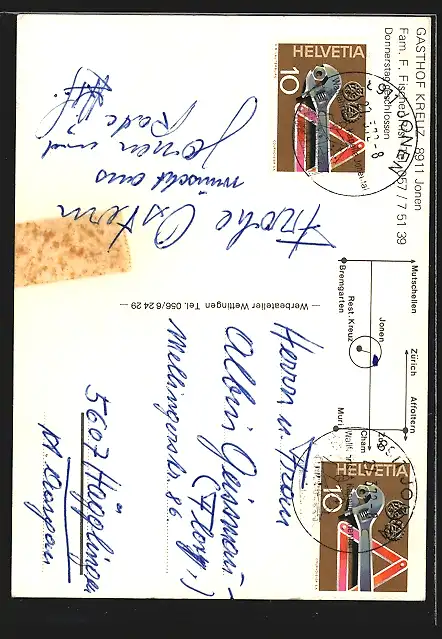 GASTHOF KREUZ 8911 Jonen
Fam. F. Fischer 057 / 7 51 39
Donnerstag geschlossen
Frohe Ostern
wünscht aus
Jonen und
Werbeatelier Wettingen Tel. 056/6 24 29
Mutschellen
Bremgarten
Zürich
Jonen
Rest. Kreuz
Affoltern
Zug
Cham
Muri
HELVETIA
10
HELVETIA
10
JONEN
Herrn u. Frau
Albin
Mellingerstr. 86
5607 Hägglingen
Kt. Aargau